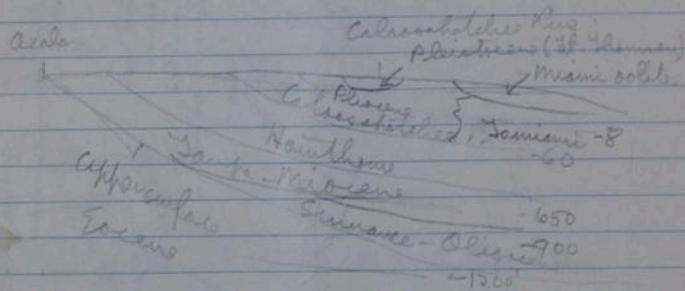 Ocala
Caloosahatchee River
Pleistocene (Ft. Thompson)
Miami oolite
Pliocene
Caloosahatchee, Tamiami -8
-60
Hawthorne
Tampa-Miocene
Suwannee-Oligo
-650
-900
-1200
Upper surface
Eocene